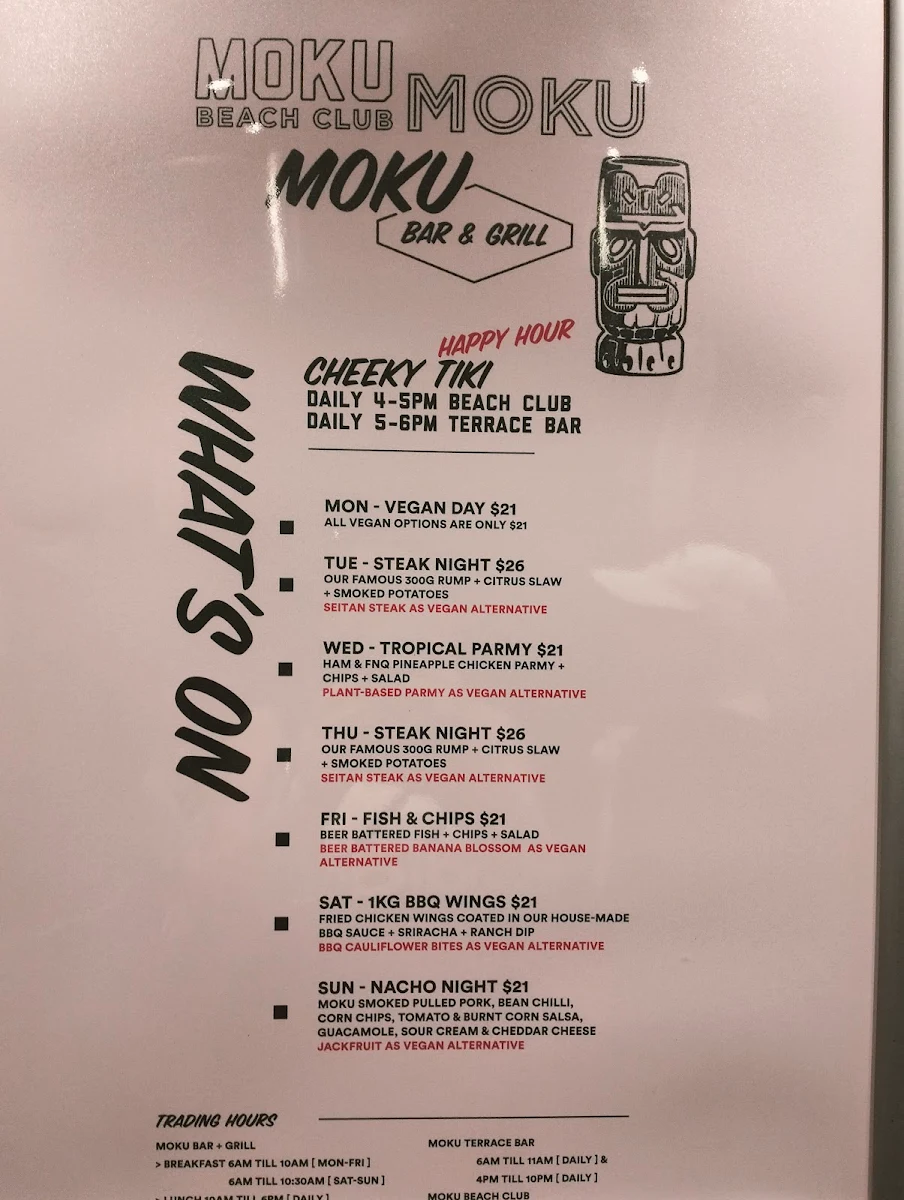 MOKU
BEACH CLUB
MOKU
MOKU
BAR & GRILL
HAPPY HOUR
CHEEKY TIKI
DAILY 4-5PM BEACH CLUB
DAILY 5-6PM TERRACE BAR
WHAT'S ON
MON - VEGAN DAY $21
ALL VEGAN OPTIONS ARE ONLY $21
TUE - STEAK NIGHT $26
OUR FAMOUS 300G RUMP + CITRUS SLAW
+ SMOKED POTATOES
SEITAN STEAK AS VEGAN ALTERNATIVE
WED - TROPICAL PARMY $21
HAM & FNQ PINEAPPLE CHICKEN PARMY +
CHIPS + SALAD
PLANT-BASED PARMY AS VEGAN ALTERNATIVE
THU - STEAK NIGHT $26
OUR FAMOUS 300G RUMP + CITRUS SLAW
+ SMOKED POTATOES
SEITAN STEAK AS VEGAN ALTERNATIVE
FRI - FISH & CHIPS $21
BEER BATTERED FISH + CHIPS + SALAD
BEER BATTERED BANANA BLOSSOM AS VEGAN
ALTERNATIVE
SAT - 1KG BBQ WINGS $21
FRIED CHICKEN WINGS COATED IN OUR HOUSE-MADE
BBQ SAUCE + SRIRACHA + RANCH DIP
BBQ CAULIFLOWER BITES AS VEGAN ALTERNATIVE
SUN - NACHO NIGHT $21
MOKU SMOKED PULLED PORK, BEAN CHILLI,
CORN CHIPS, TOMATO & BURNT CORN SALSA,
GUACAMOLE, SOUR CREAM & CHEDDAR CHEESE
JACKFRUIT AS VEGAN ALTERNATIVE
TRADING HOURS
MOKU BAR + GRILL
> BREAKFAST 6AM TILL 10AM [ MON-FRI ]
6AM TILL 10:30AM [ SAT-SUN ]
> LUNCH 10AM TILL 6PM [ DAILY ]
MOKU TERRACE BAR
6AM TILL 11AM [ DAILY ] &
4PM TILL 10PM [ DAILY ]
MOKU BEACH CLUB